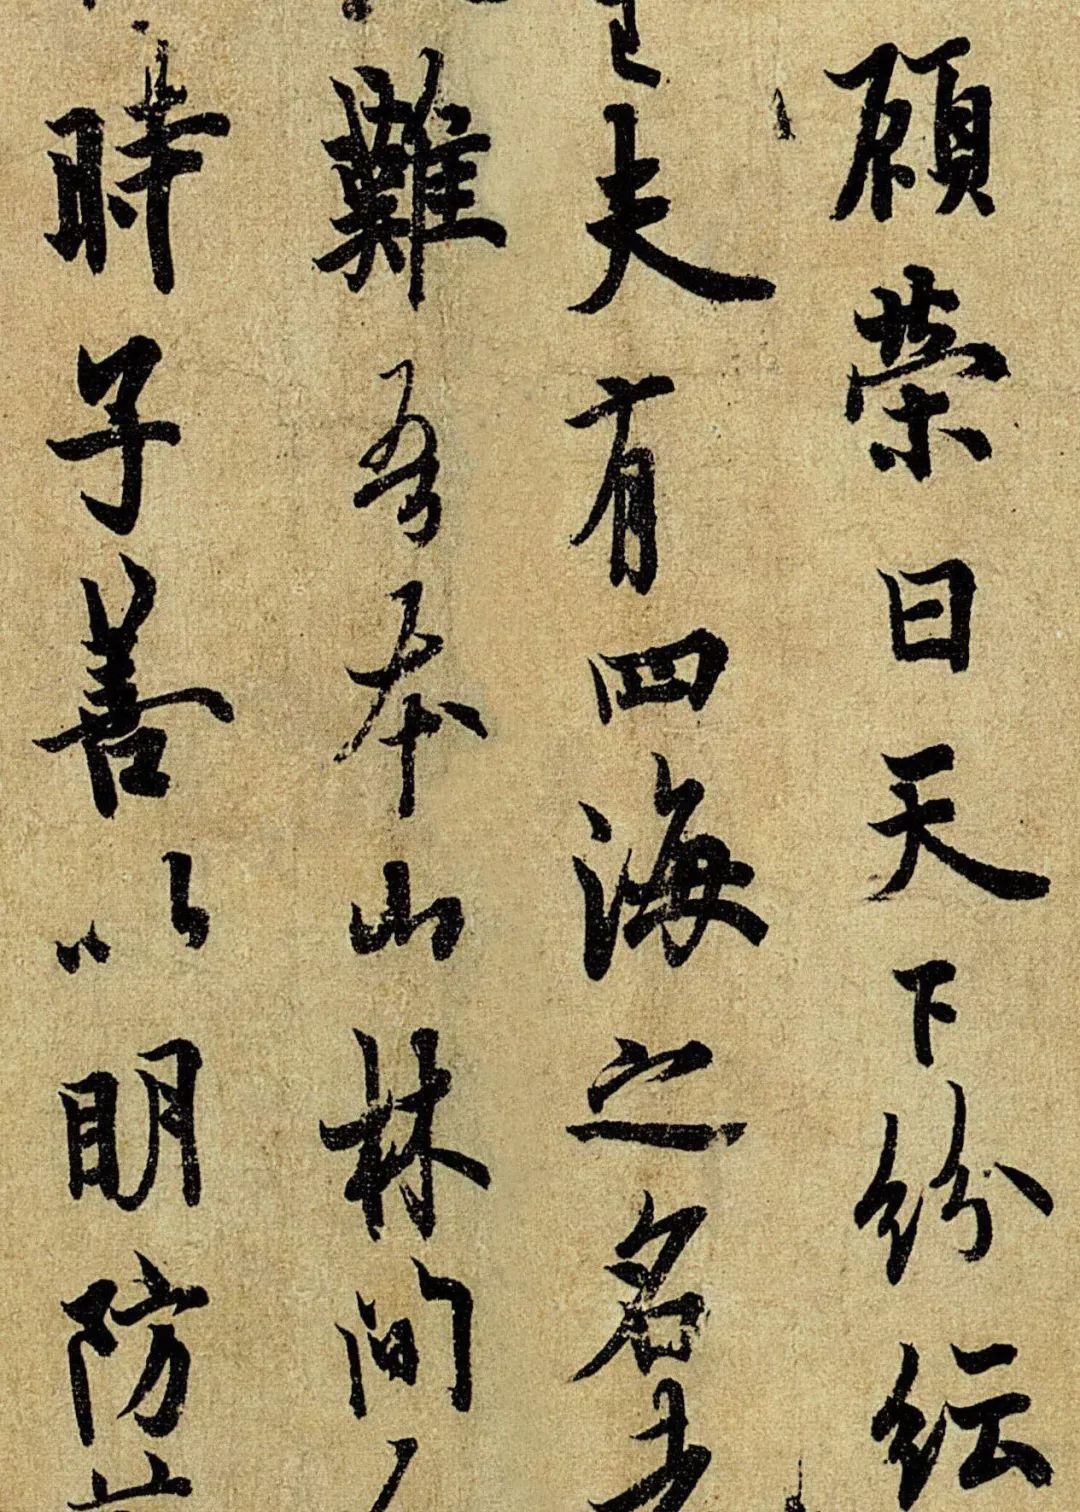 顧榮曰天下紛紜
夫有四海之名
難吾本山林間
時子善以明防